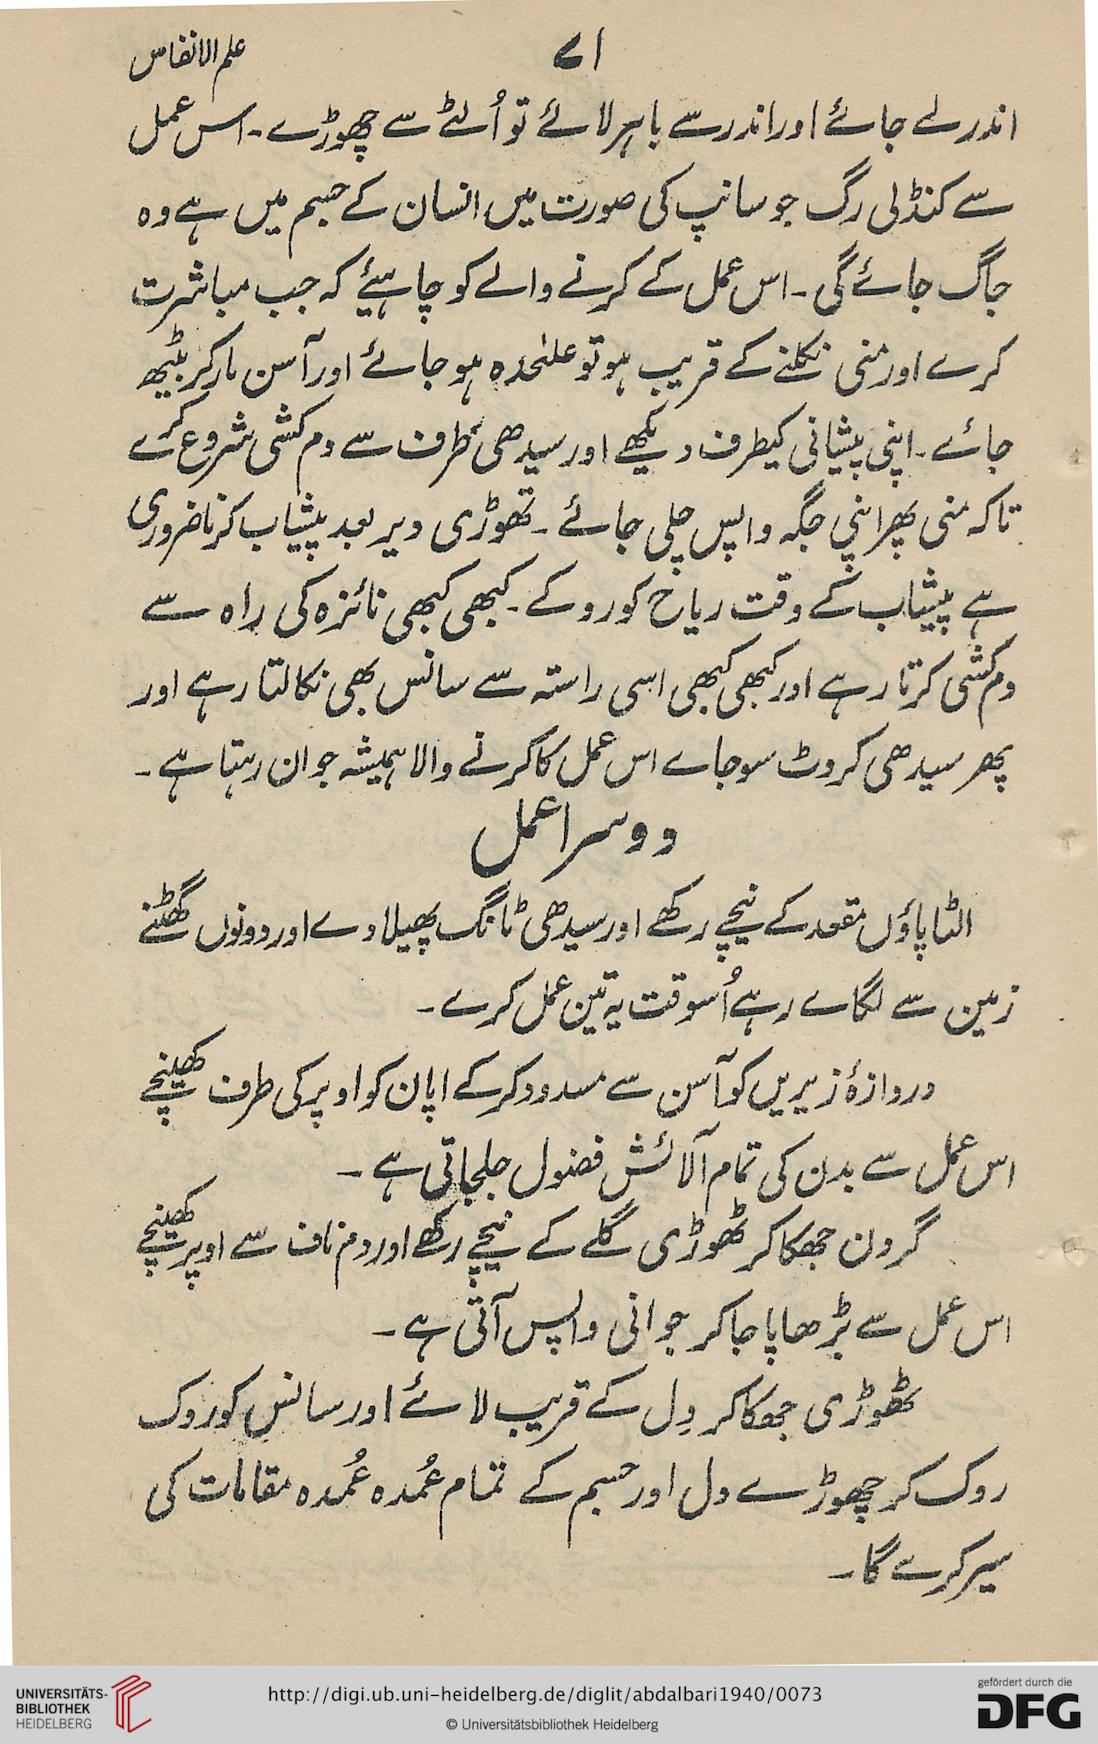 علم الانفاس
۷۱
اندر لے جائے اور اندر سے باہر لائے تو اُلٹے سے چھوڑے ۔ اس عمل
سے کنڈلی رگ جو سانپ کی صورت میں انسان کے جسم میں ہے وہ
جاگ جائے گی ۔ اس عمل کے کرنے والے کو چاہیئے کہ جب مباشرت
کرے اور منی نکلنے کے قریب ہو تو علٰحدہ ہو جائے اور آسن مار کر بیٹھ
جائے ۔ اپنی پیشانی کیطرف دیکھے اور سیدھی طرف سے دم کشی شروع کرے
تاکہ منی پھر اپنی جگہ واپس چلی جائے ۔ تھوڑی دیر بعد پیشاب کرنا ضروری
ہے پیشاب کے وقت ریاح کو روکے ۔ کبھی کبھی نائزہ کی راہ سے
دم کشی کرتا رہے اور کبھی کبھی اسی راستہ سے سانس بھی نکالتا رہے اور
پھر سیدھی کروٹ سو جاے اس عمل کا کرنے والا ہمیشہ جوان رہتا ہے ۔
دوسرا عمل
الٹا پاؤں مقعد کے نیچے رکھے اور سیدھی ٹانگ پھیلا دے اور دونوں گھٹنے
زمین سے لگاے رہے اُسوقت یہ تین عمل کرے ۔
دروازۂ زیریں کو آسن سے مسدود کر کے اپان کو اوپر کی طرف کھینچے
اس عمل سے بدن کی تمام آلائش فضول جلجاتی ہے ۔
گردن جھکا کر ٹھوڑی گلے کے نیچے رکھے اور دم ناف سے اوپر کھینچے
اس عمل سے بڑھاپا جا کر جوانی واپس آتی ہے ۔
ٹھوڑی جھکا کر دِل کے قریب لائے اور سانس کو روک
روک کر چھوڑے دل اور جسم کے تمام عُمدہ عُمدہ مقامات کی
سیر کرے گا ۔
UNIVERSITÄTS-
BIBLIOTHEK
HEIDELBERG
http://digi.ub.uni-heidelberg.de/diglit/abdalbari1940/0073
© Universitätsbibliothek Heidelberg
gefördert durch die
DFG